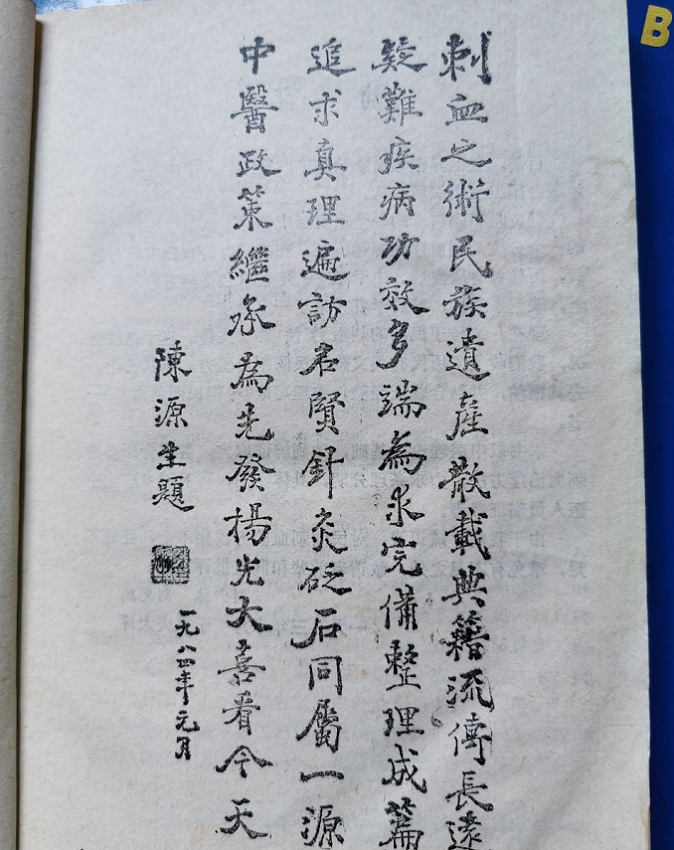 刺血之術民族遺產散載典籍流傳長遠
疑難疾病功效多端為求完備整理成篇
追求真理遍訪名賢針灸砭石同屬一源
中醫政策繼承為先發揚光大喜看今天
陳源生題
一九八四年元月
B